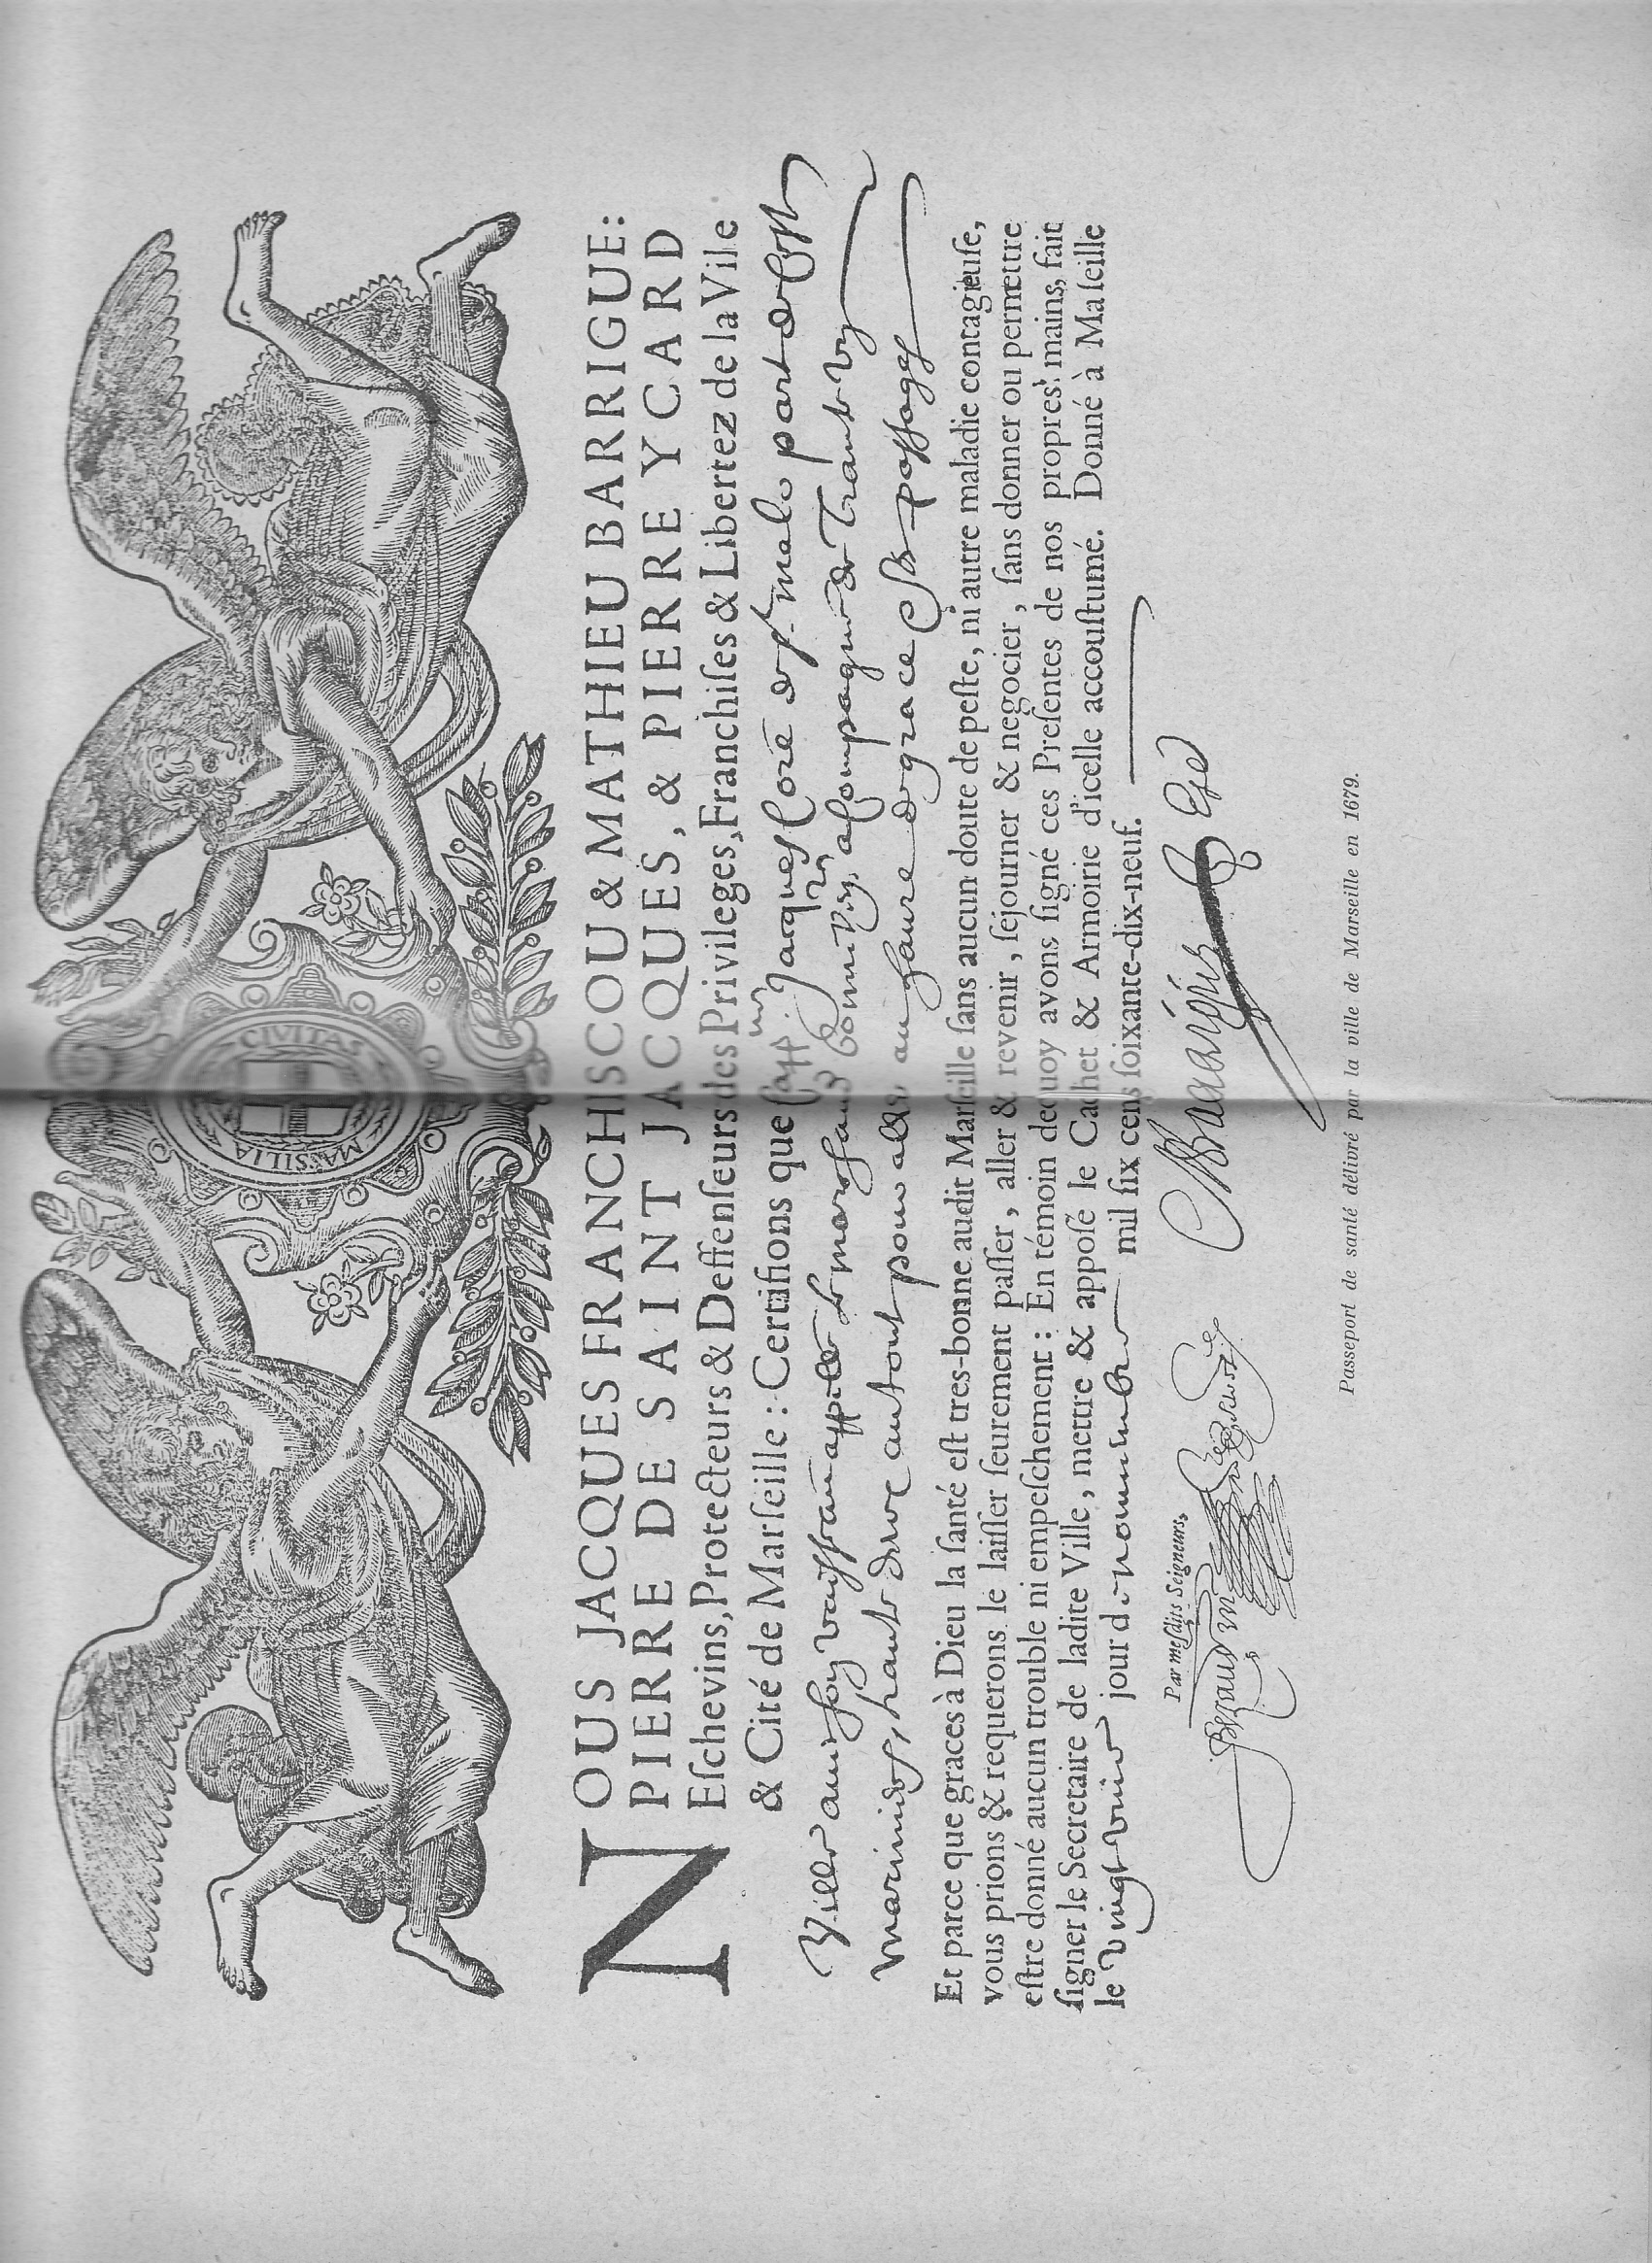 CIVITAS MASSILIA
NOUS JACQUES FRANCHISCOU & MATHIEU BARRIGUE:
PIERRE DE SAINT JACQUES, & PIERRE YCARD
Eſchevins, Protecteurs & Deffenſeurs des Privileges, Franchiſes & Libertez de la Ville
& Cité de Marſeille : Certifions que Jacques Loré de st malo part de cette
Ville avec son vaisseau appellé le marchand acompagné de Trante un
mariniers pour aller au havre de grace passage
Et parce que graces à Dieu la ſanté eſt tres-bonne audit Marſeille ſans aucun doute de peſte, ni autre maladie contagieuſe,
vous prions & requerons le laiſſer ſeurement paſſer, aller & revenir, ſejourner & negocier, ſans donner ou permettre
eſtre donné aucun trouble ni empeſchement : En témoin dequoy avons ſigné ces Preſentes de nos propres mains, fait
ſigner le Secretaire de ladite Ville, mettre & appoſé le Cachet & Armoirie d'icelle accouſtumé. Donné à Maſeille
le vingt jour de novembre mil ſix cens ſoixante-dix-neuf.
Par meſdits Seigneurs,
Passeport de santé délivré par la ville de Marseille en 1679.